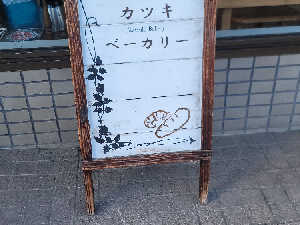 カツキ
ベーカリー